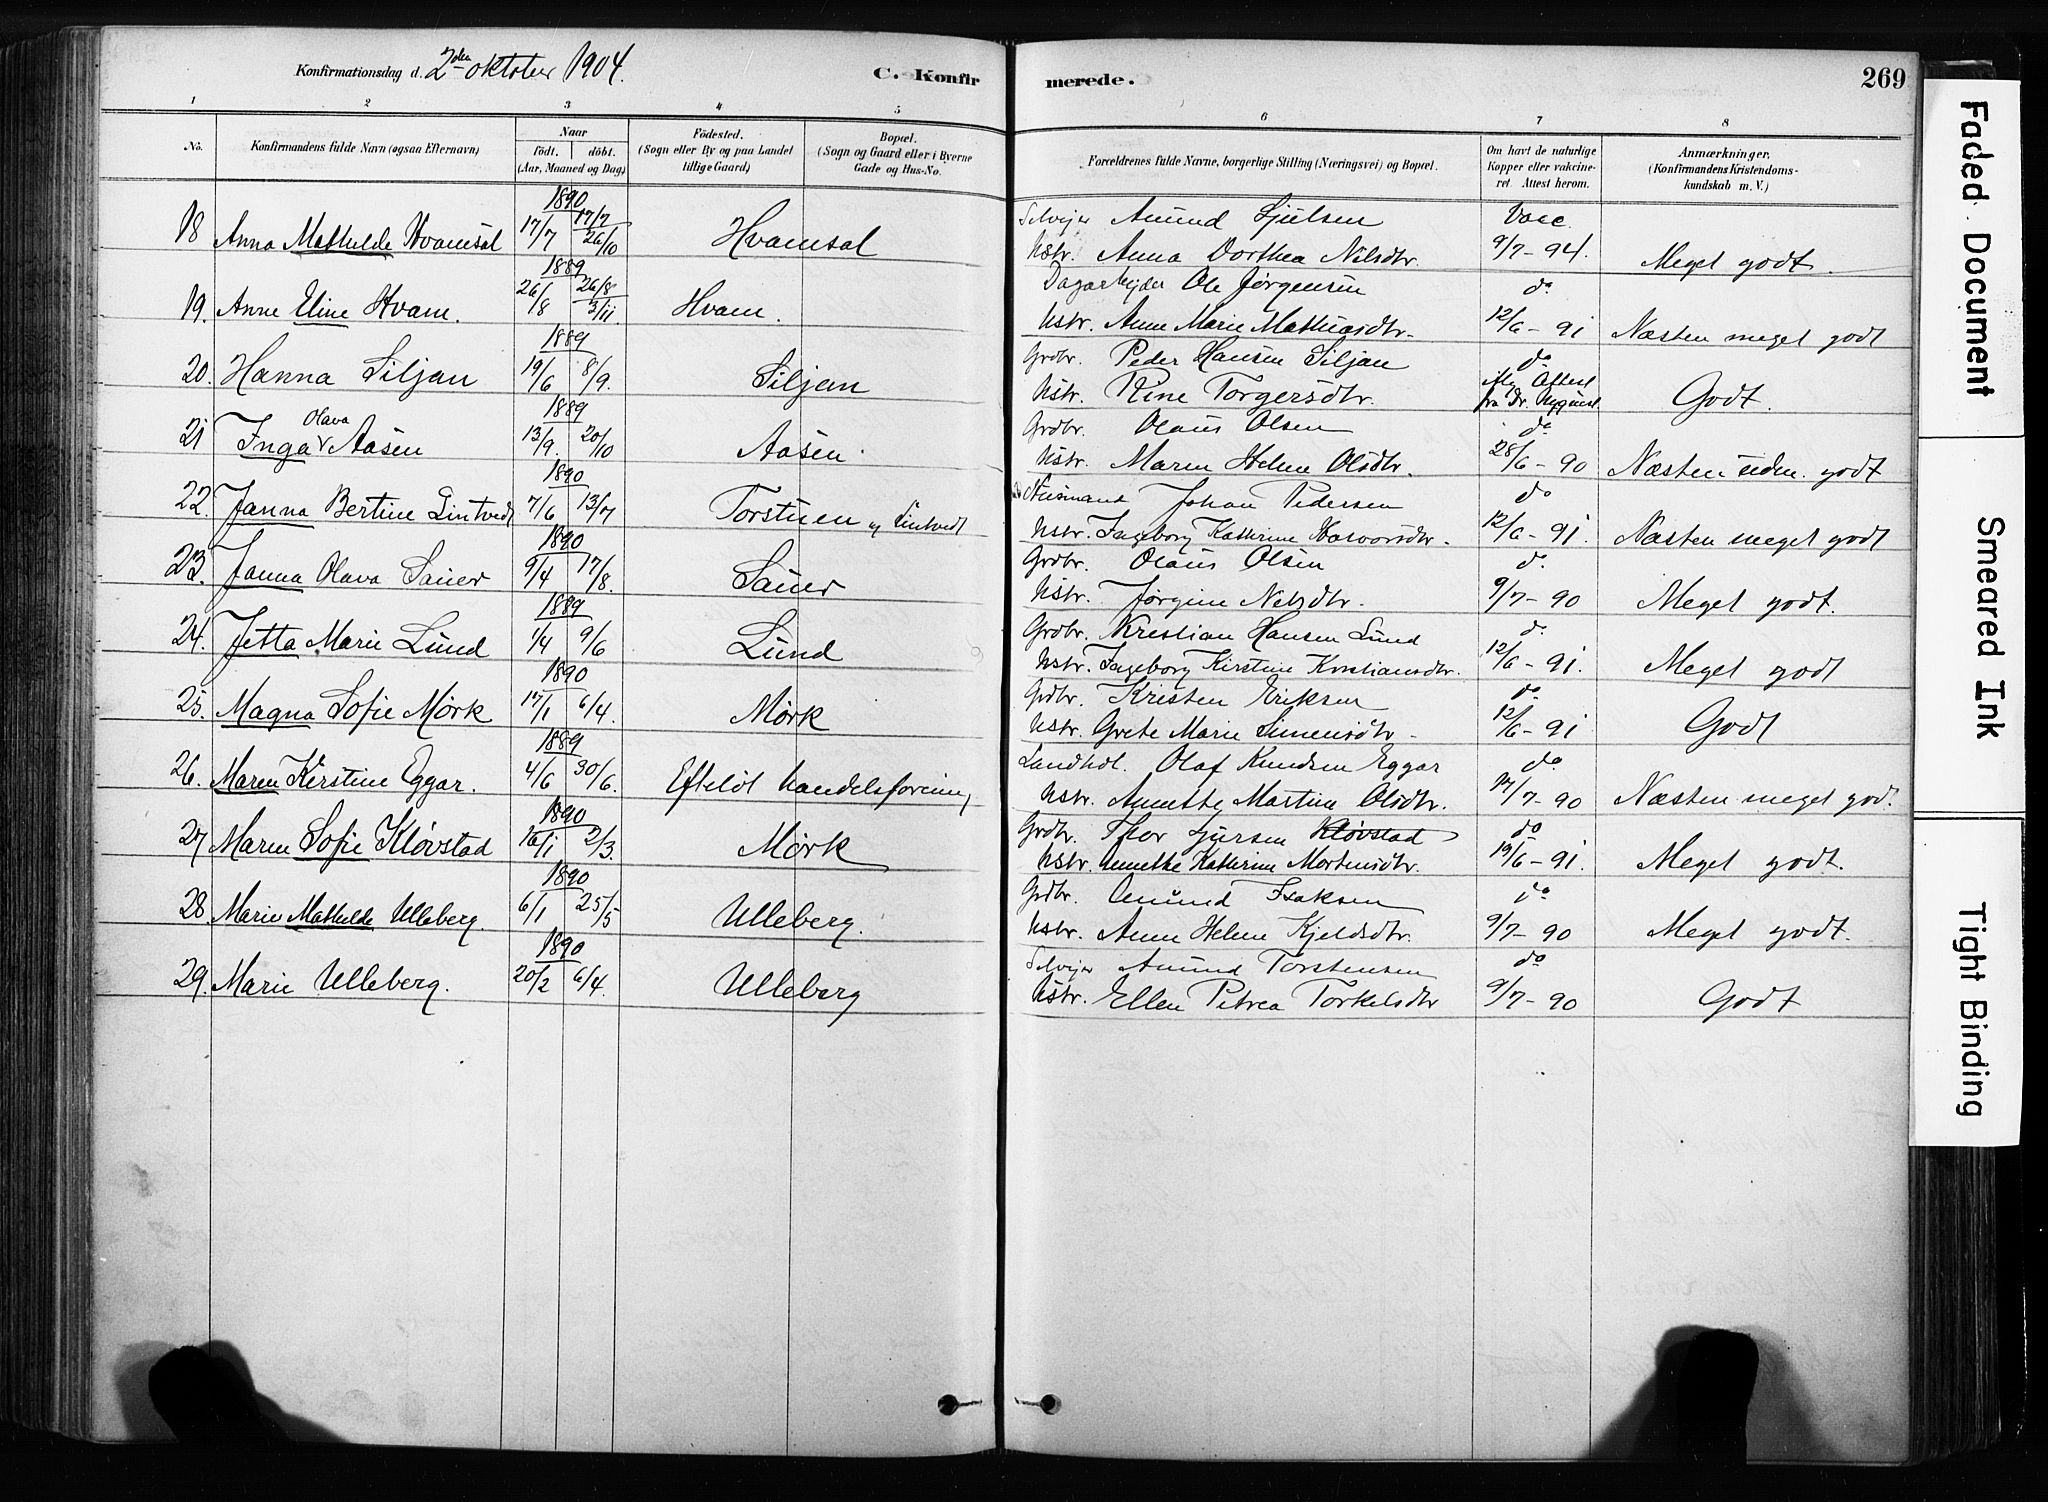 Konfirmationsdag d. 2den oktober 1904.
C. Konfirmerede.
269
1 2 3 4 5 6 7 8
No.
Konfirmandens fulde Navn (ogsaa Efternavn)
Naar
födt. döbt.
(Aar, Maaned og Dag)
Födested.
(Sogn eller By og paa Landet
tillige Gaard)
Bopæl.
(Sogn og Gaard eller i Byerne
Gade og Hus-No.
Forældrenes fulde Navne, borgerlige Stilling (Næringsvei) og Bopæl.
Om havt de naturlige
Kopper eller vakcine-
ret. Attest herom.
Anmærkninger.
(Konfirmandens Kristendoms-
kundskab m. V.)
1890
18 Anna Mathilde Hvamsal 17/7 17/7 26/10 Hvamsal Selvejer Amund Sjulsen Vacc.
Hstr. Anna Dorthea Nilsdtr. 9/7-94. Meget godt
1889
19. Anne Eline Hvam. 26/8 26/8 3/11. Hvam. Dagarbejder Ole Jørgensen do
Hstr. Anne Marie Mathiasdtr. 12/6-91 Næsten meget godt
1889
20. Hanna Siljan 19/6 8/9. Siljan Grdbr. Peder Hansen Siljan do
Hstr. Rine Torgersdtr. Attest
fra Dr. Godt.
1889
21 Inga Olava Aasen 13/9. 20/10 Aasen Grdbr. Olaus Olsen do
Hstr. Maren Helene Olsdtr. 28/6-90 Næsten godt
1890
22. Janna Bertine Lintvedt 7/6 13/7 Torstuen og Lintvedt Husmand Johan Pedersen do
Hstr. Ingeborg Kathrine Havorsdtr. 12/6-91. Næsten meget godt
1890
23. Janna Olava Sauer 9/4 17/8. Sauer Grdbr. Olaus Olsen do.
Hstr. Jørgine Nilsdtr. 9/7-90 Meget godt.
1889
24. Jetta Marie Lund 1/4 9/6 Lund Grdbr. Kristian Hansen Lund do.
Hstr. Ingeborg Kirstine Kristiansdtr. 12/6-91. Meget godt
1890
25. Magna Sofie Mørk 17/1 6/4. Mørk Grdbr. Kristen Eriksen do.
Hstr. Grete Marie Simensdtr 12/6-91 Godt
1889
26. Maren Kirstine Eggar. 4/6 30/6. Efteløt handelsforening Landhdl. Olaf Knudsen Eggar do
Hstr. Annette Martine Olsdtr. 17/7-90 Næsten meget god.
1890
27 Maren Sofie Kløvstad 16/1 2/3. Mørk Grdbr. Thor Sjursen Kløvstad do
Hstr. Annethe Kathrine Mortensdtr. 19/6-91. Meget godt.
1890
28. Marie Mathilde Ulleberg. 6/1 25/5 Ulleberg. Grdbr. Amund Isaksen do
Hstr. Anne Helene Kjeldsdtr. 9/7-90 Meget godt.
1890
29. Marie Ulleberg. 20/2 6/4. Ulleberg Selvejer Amund Torstensen do
Hstr. Ellen Petrea Torkelsdtr 9/7-90 Godt
Faded Document
Smeared Ink
Tight Binding